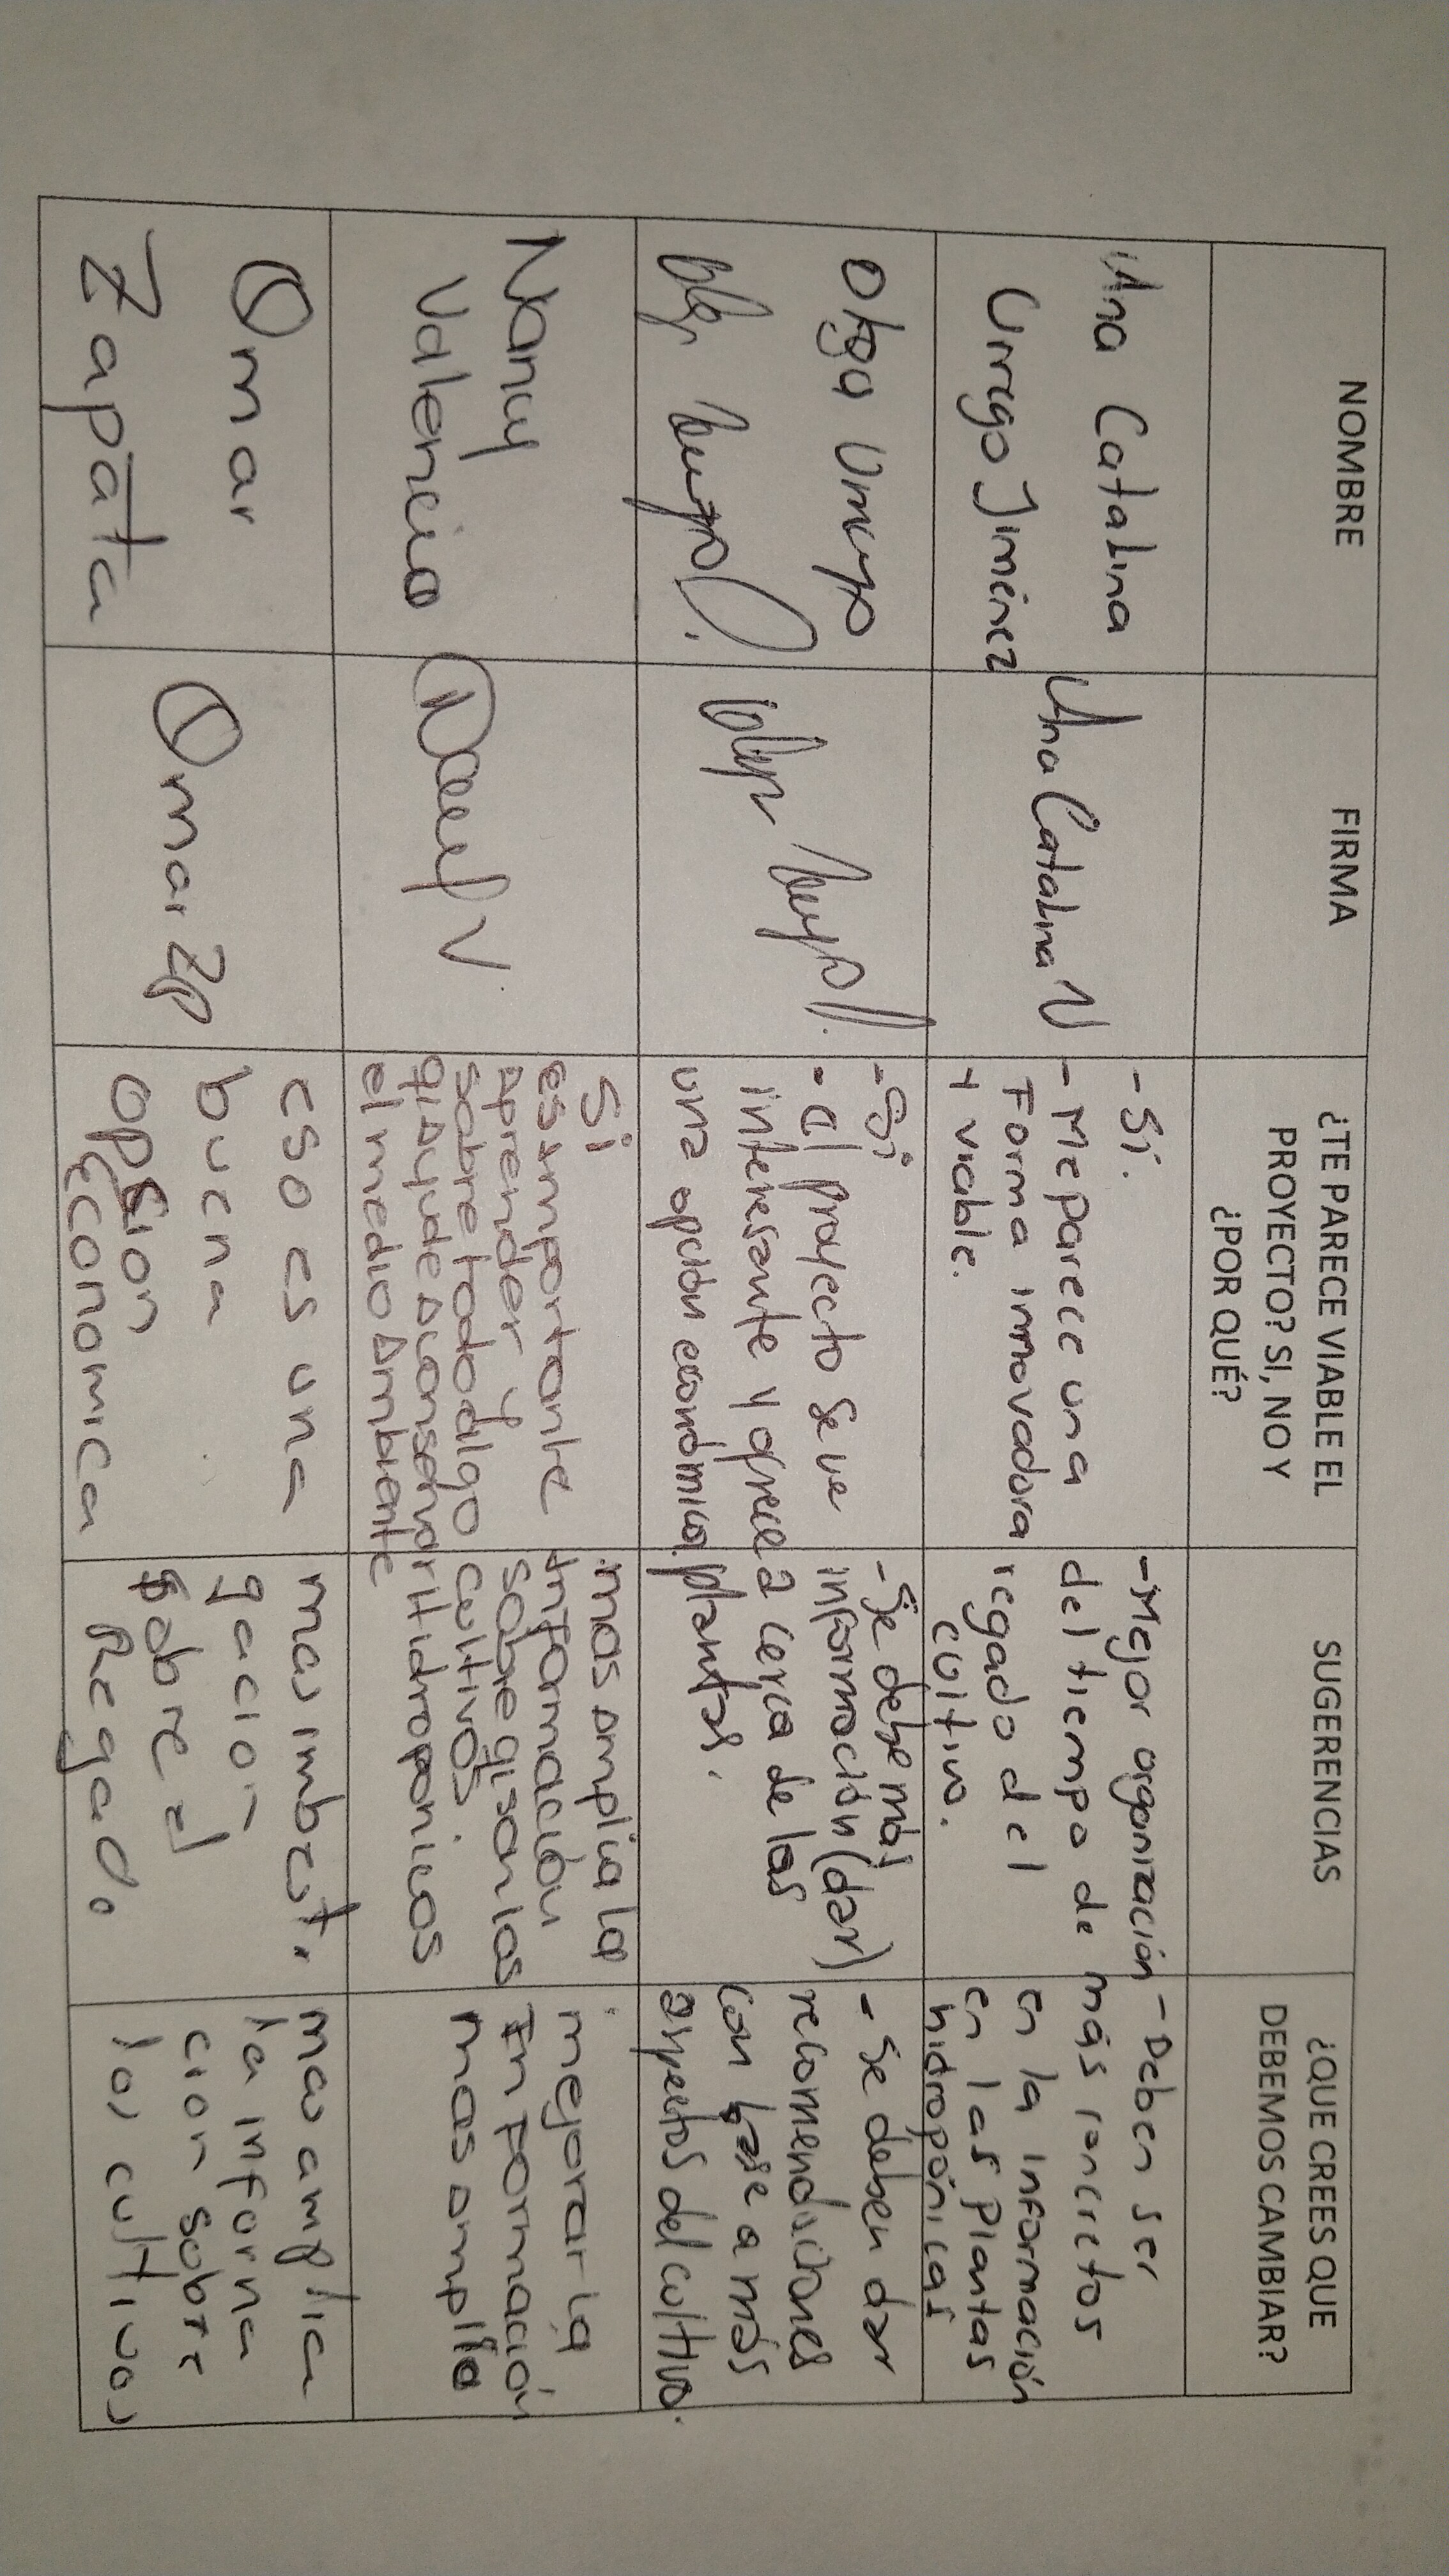 NOMBRE
FIRMA
¿TE PARECE VIABLE EL
PROYECTO? SI, NO Y
¿POR QUÉ?
SUGERENCIAS
¿QUE CREES QUE
DEBEMOS CAMBIAR?
Ana Catalina
Urrego Jiménez
Ana Catalina U
- Sí.
- Me parece una
Forma innovadora
y viable.
- Mejor organización
del tiempo de
regado del
cultivo.
- Deben ser
más concretos
en la información
en las Plantas
hidropónicas
Olga Urrego
- Si
- el proyecto se ve
interesante y ofrece
una opción económica.
- Se debe más
información (dar)
a cerca de las
plantas.
- Se deben dar
recomendaciones
con base a más
aspectos del cultivo.
Nancy
Valencia
Si
es importante
aprender y
sobre todo algo
q' ayude a conservar
el medio ambiente
mas amplia la
información
sobre q' son los
cultivos.
Hidroponicos
mejorar la
Información
mas amplia
Omar
Zapata
Omar Zp
eso es una
buena
opsion
Economica
mas imbesti
gacion
sobre el
Regado
mas amplia
la informa
cion sobre
los cultivos